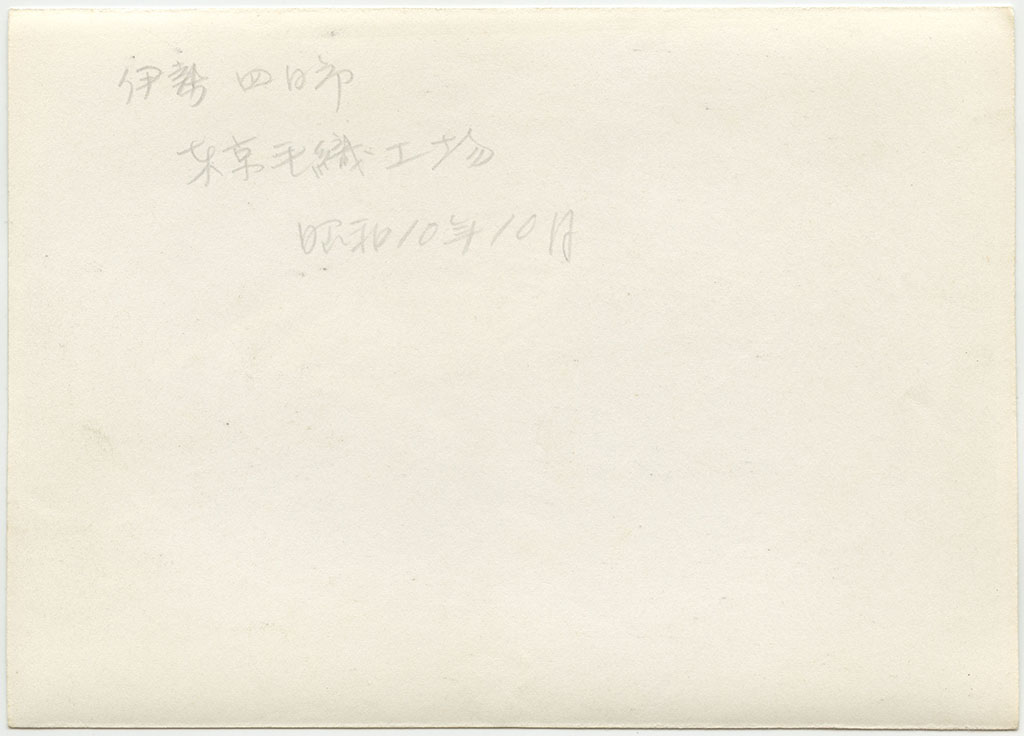 伊勢 四日市
東京毛織工場
昭和10年10月